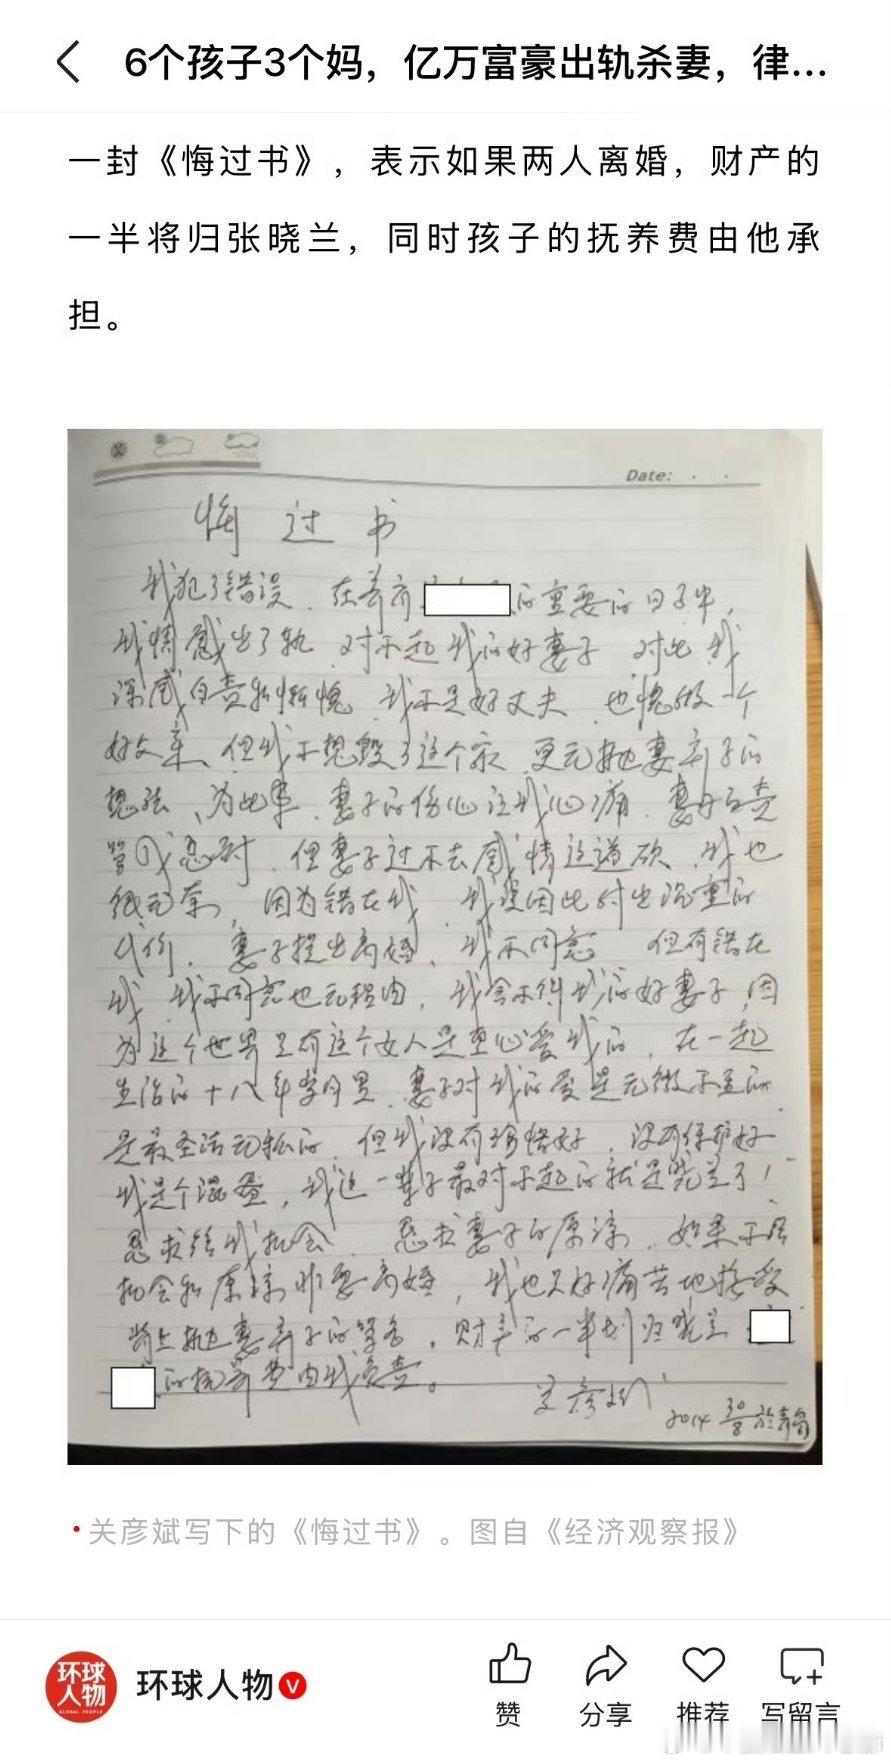 6个孩子3个妈，亿万富豪出轨杀妻，律...
一封《悔过书》，表示如果两人离婚，财产的
一半将归张晓兰，同时孩子的抚养费由他承
担。
Date:
悔过书
我犯了错误．在养育 的重要的日子中，
我情感出了轨．对不起我的好妻子．对此我
深感自责和惭愧．我不是好丈夫．也愧做一个
好父亲、但我不想毁了这个家．更无抛妻弃子的
想法、为此事．妻子的伤心让我心痛．妻子
．但妻子过不去感情这道砍．我也
很无奈，因为错在我．我要因此付出沉重的
代价．妻子提出离婚、我不同意 但有错在
我．我不同意也无理由．我舍不得我的好妻子，因
为这个世界只有这个女人是真心爱我的．在一起
生活的十八年岁月里．妻子对我的爱是无微不至的
是最圣洁无私的．但我没有珍惜好．没有保护好
我是个混蛋，我这一辈子最对不起的就是晓兰了！
恳求给我机会．恳求妻子的原谅．如果不给
机会和原谅非要离婚，我也只好痛苦地接受
背上抛妻弃子的骂名，财产的一半划归晓兰
的抚养费由我负责。
关彦斌 2014 30/8 於青岛
•关彦斌写下的《悔过书》。图自《经济观察报》
环球人物
GLOBAL PEOPLE
环球人物 V
赞 分享 推荐 写留言